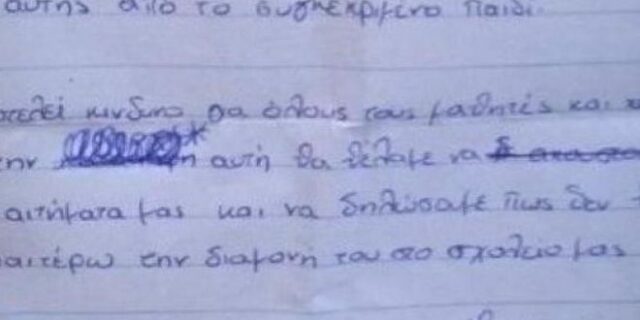 αυτής από το συγκεκριμένο παιδί.
οτελεί κίνδυνο για όλους τους μαθητές και
ην αυτή θα θέλαμε να
αιτήματα μας και να δηλώσουμε πως δεν
αιτέρω την διαμονή του στο σχολείο μας